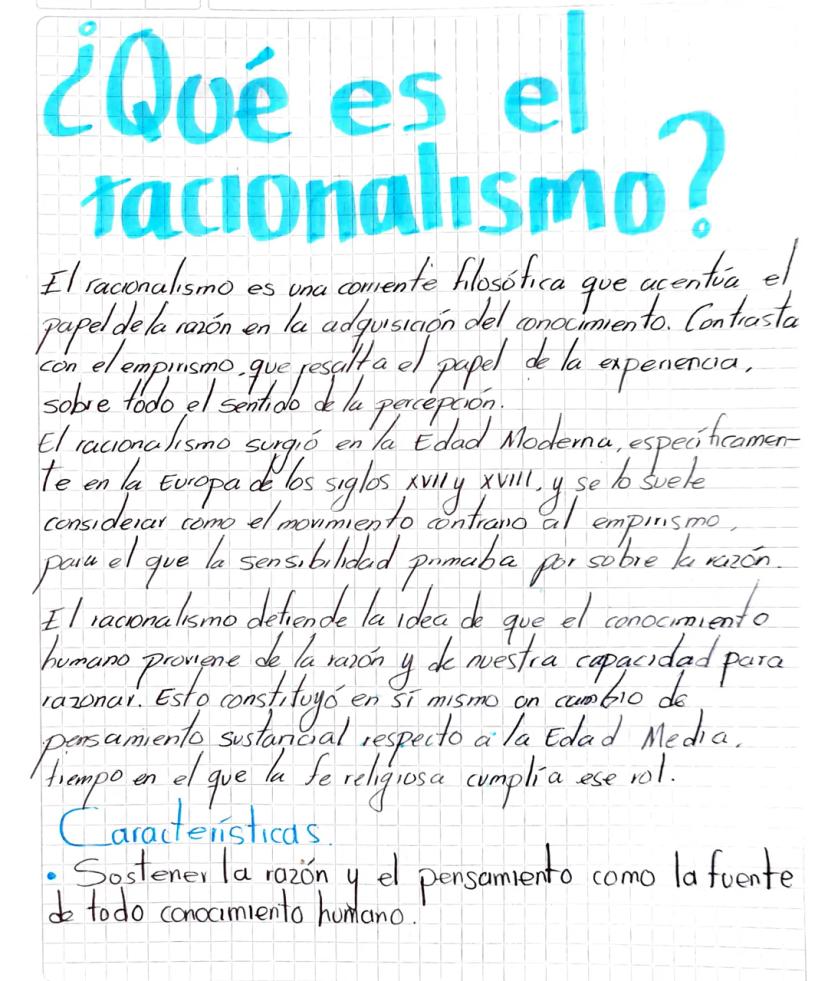 ¿Qué es el
racionalismo?
El racionalismo es una corriente filosófica que acentúa el
papel de la razón en la adquisición del conocimiento. Contrasta
con el empirismo, que resalta el papel de la experiencia,
sobre todo el sentido de la percepción.
El racionalismo surgió en la Edad Moderna, específicamen-
te en la Europa de los siglos XVII y XVIII, y se lo suele
considerar como el movimiento contrario al empirismo,
para el que la sensibilidad primaba por sobre la razón.
El racionalismo defiende la idea de que el conocimiento
humano proviene de la razón y de nuestra capacidad para
razonar. Esto constituyó en sí mismo un cambio de
pensamiento sustancial respecto a la Edad Media,
tiempo en el que la fe religiosa cumplía ese rol.
Características.
• Sostener la razón y el pensamiento como la fuente
de todo conocimiento humano.